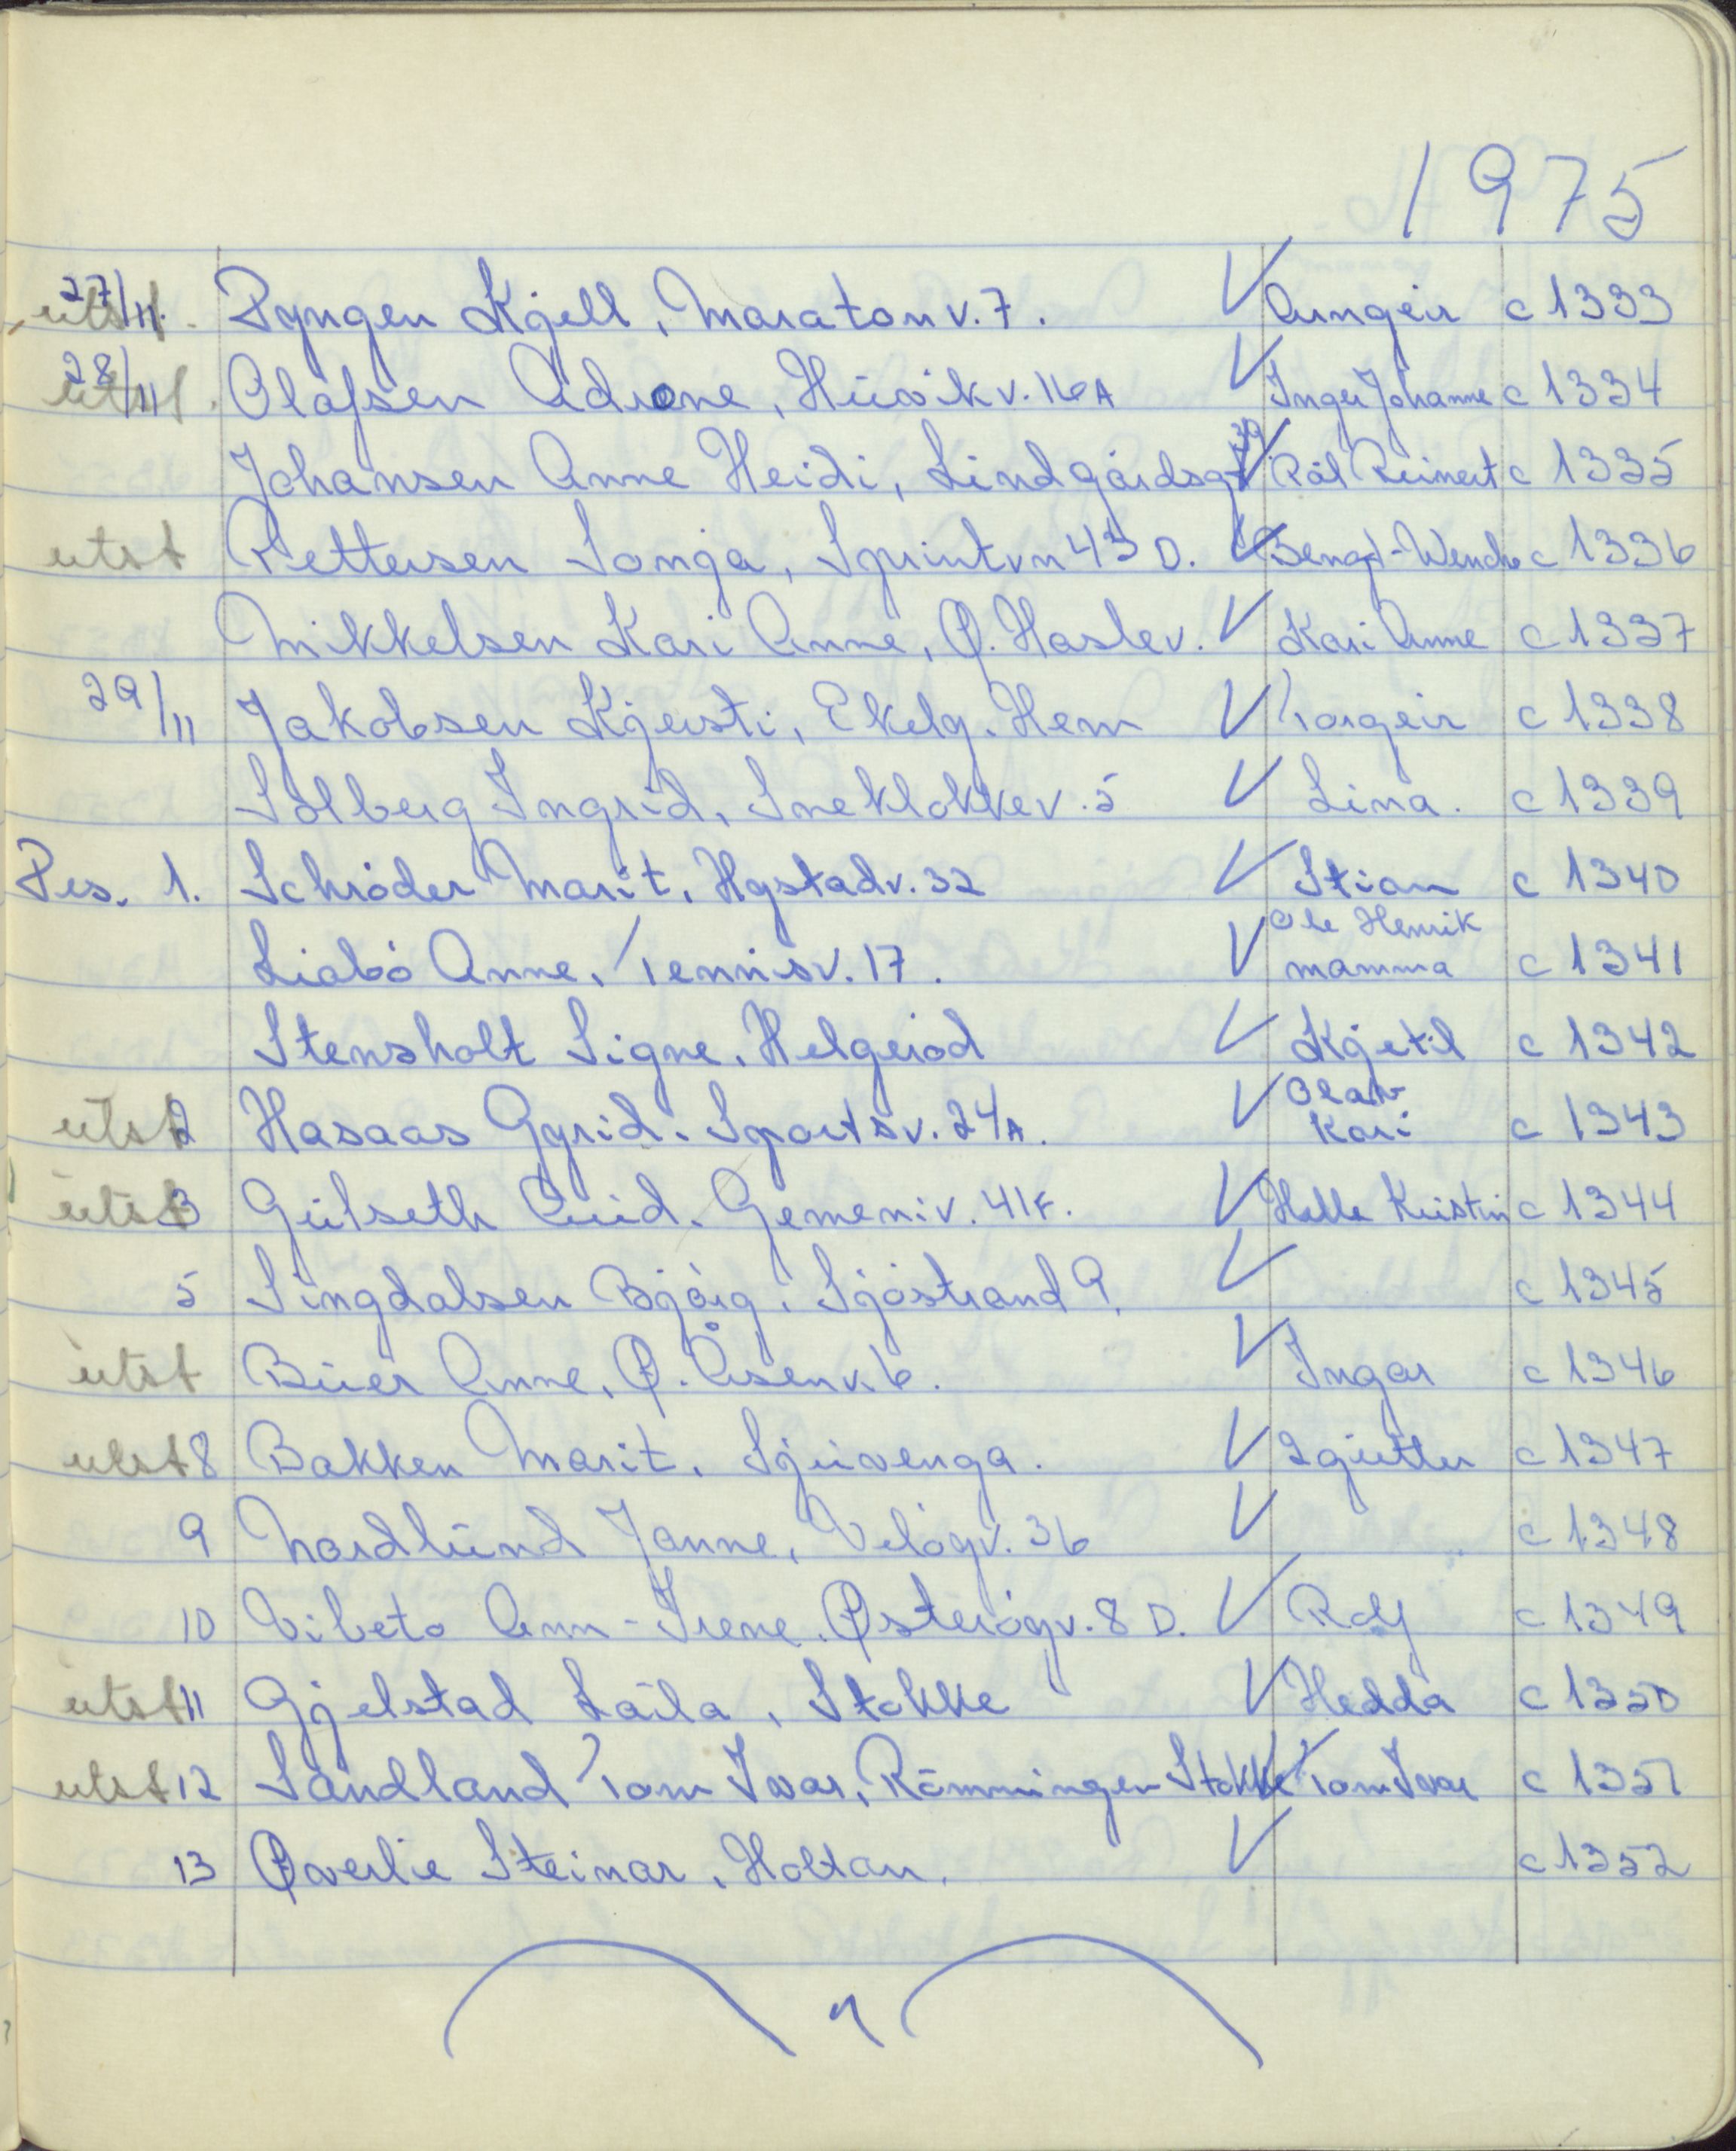 1975
27/11. utst. Pyngen Kjell, Maratonv. 7. V Arngeir c 1333
28/11 utst. Olafsen Adrone, Husvikv. 16A V Inger Johanne c 1334
Johansen Anne Heidi, Lindgårdsgt 39 V Pål Reinert c 1335
utst Pettersen Sonja, Sprintvn 43 D. V Bengt-Wenche c 1336
Mikkelsen Kari Anne, Ø. Haslev. V Kari Anne c 1337
29/11 Jakobsen Kjersti, Ekelg. Hem V Torgeir c 1338
Solberg Ingrid, Sneklokkev. 5 V Lina. c 1339
Des. 1. Schrøder Marit, Hystadv. 32 V Stian c 1340
Liabø Anne, Tennisv. 17. V Ole Henrik mamma c 1341
Stensholt Signe, Helgerød V Kjetil c 1342
utst 2 Hasaas Gyrid. Sportsv. 24A. V Olav Kari c 1343
utst 3 Gulseth Aud. Gemeniv. 41F. V Helle Kristin c 1344
5 Lingdalsen Bjørg. Sjøstrand 9. V c 1345
utst Buer Anne, Ø. Åsenv. 6. V Ingar c 1346
utst 8 Bakken Marit. Sjuvenga. V 2 gutter c 1347
9 Nordlund Janne, Veløgv. 36 V c 1348
10 Vibeto Ann-Irene. Østerøyv. 8 D. V Rolf c 1349
utst 11 Gjelstad Laila, Stokke V Hedda c 1350
utst 12 Sandland Tom Ivar, Rømmingen Stokke V Tom Ivar c 1351
13 Øverlie Steinar, Holtan. V c 1352